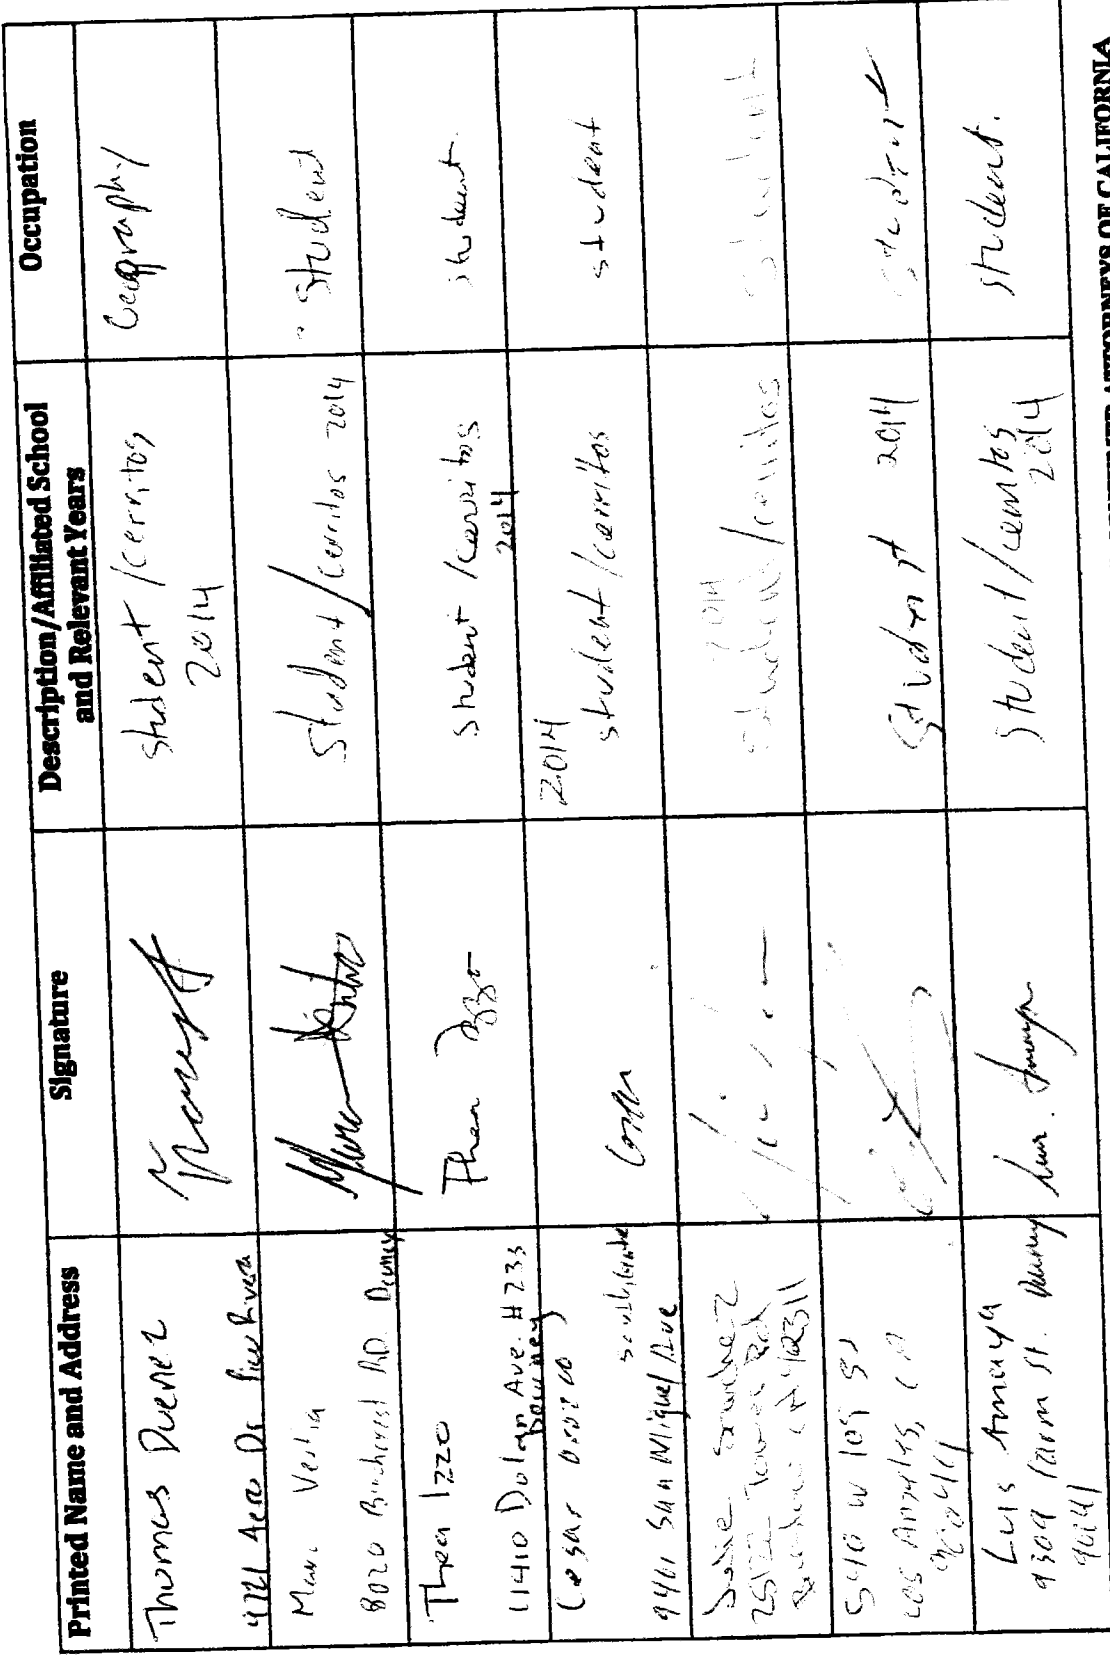 Printed Name and Address
Signature
Description/Affiliated School
and Relevant Years
Occupation
Thomas Duenez
4721 Acro Dr Pico Rivera
student/cerritos
2014
Geography
Marc
8020 Birchcrest RD. Downey
Student/cerritos 2014
Student
Thea Izzo
11410 Dolan Ave. #233
Downey
Thea Izzo
student/cerritos
2014
student.
Cesar Orozco
southgate
9461 San Miguel Ave
2014
student/cerritos
student
Julie Sanchez
2014
student/cerritos
student
5410 W 109 St
Los Angeles, CA
Student 2014
student
Luis Amaya
9309 Parm St. Downey
90241
Luis Amaya
student/cerritos
2014
student.
CONSUMER ATTORNEYS OF CALIFORNIA